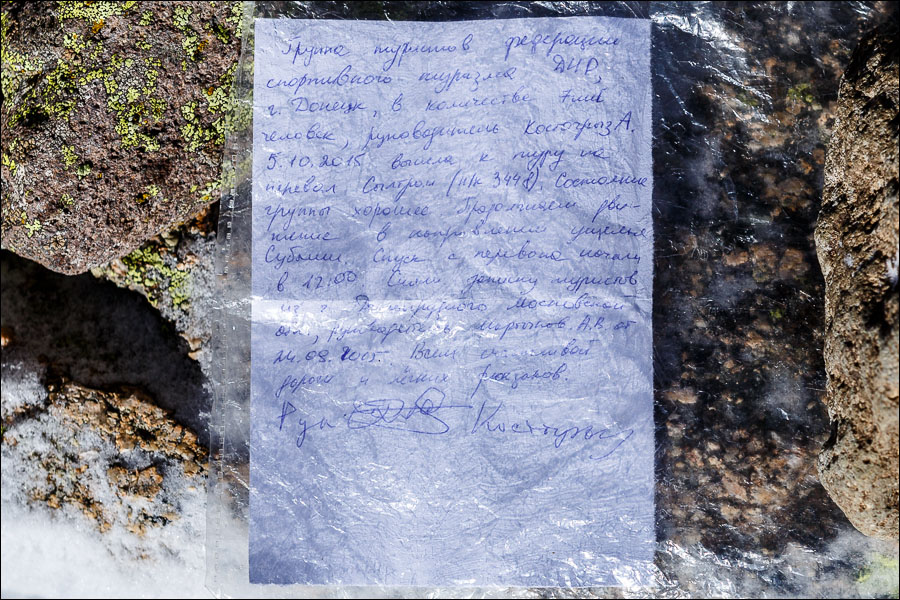 Группа туристов федерации
спортивного туризма ДНР,
г. Донецк, в количестве 7ми
человек, руководитель Костогрыз А.
5.10.2015 вышла к туру на
перевал Сылтран (н/к 3441). Состояние
группы хорошее Продолжаем дви-
жение в направлении ущелья
Субаши. Спуск с перевала начали
в 12.00 Сняли записку туристов
из г. Московской
обл, руководитель Мартынов А.В. от
. Всем счастливой
дороги и лёгких рюкзаков.
Рук Костогрыз